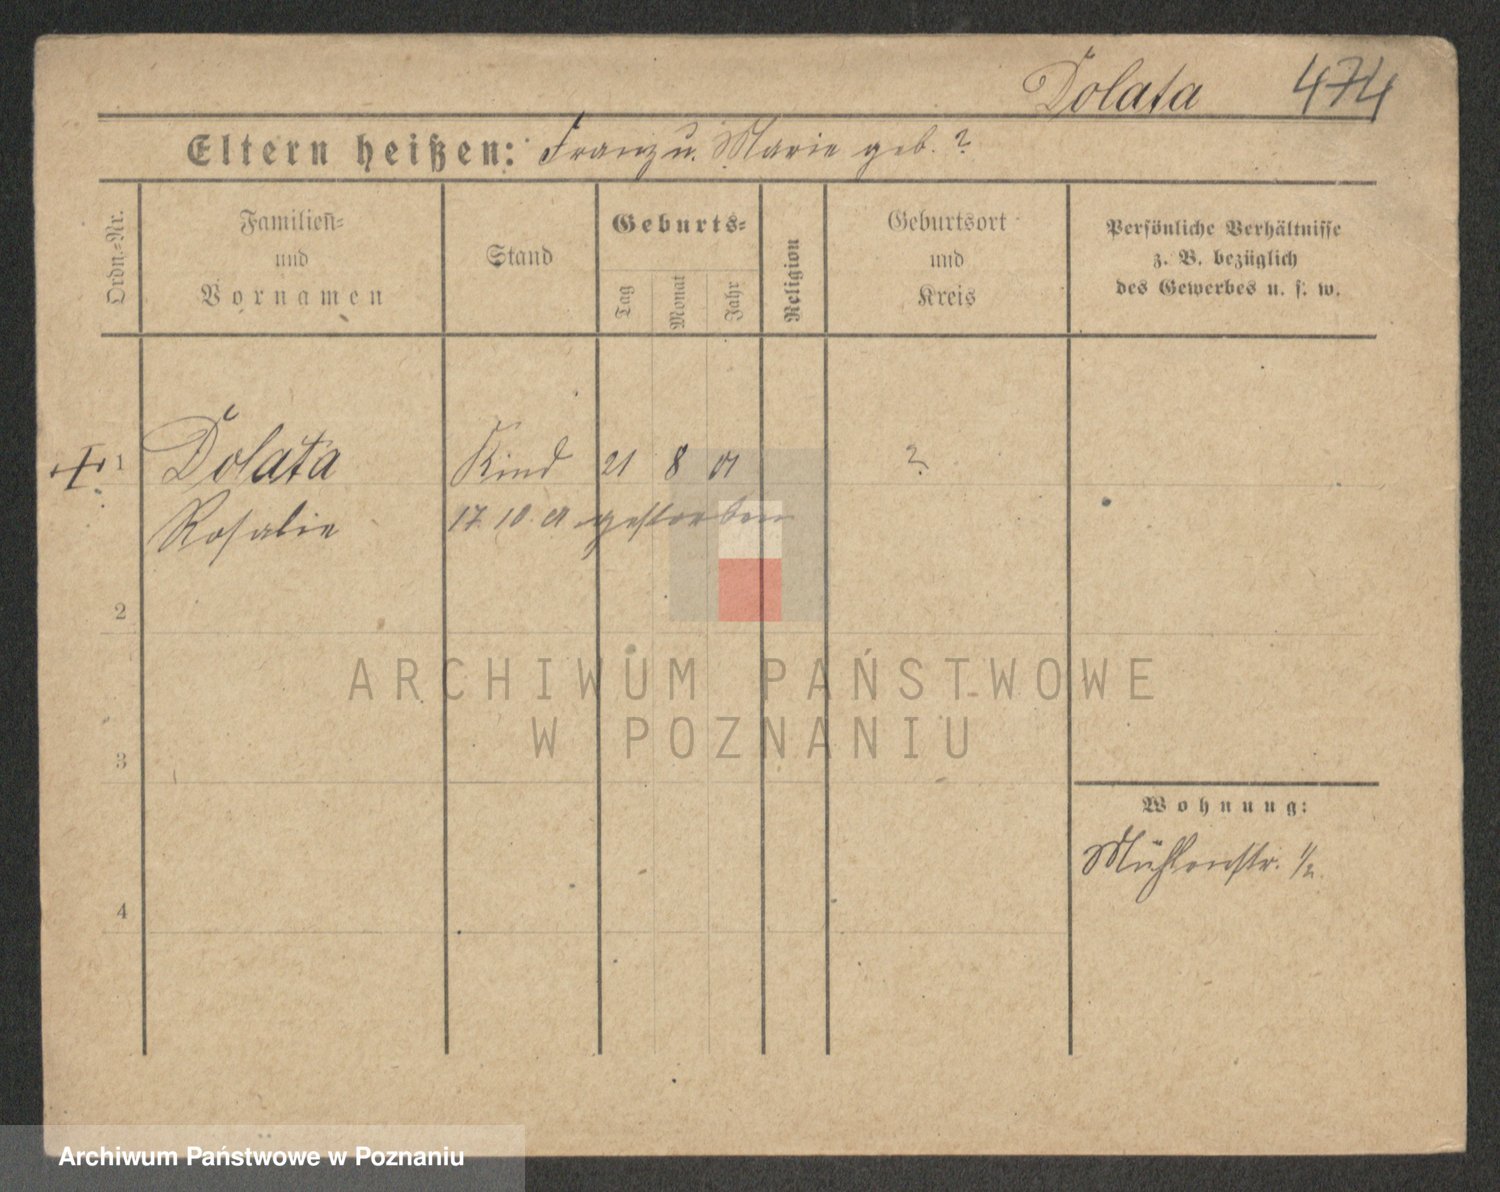 Dolata 474
Eltern heißen: Franz u. Marie geb. ?
Ordn.-Nr.
Familien-
und
Vornamen
Stand
Geburts-
Tag
Monat
Jahr
Religion
Geburtsort
und
Kreis
Persönliche Verhältnisse
z. B. bezüglich
des Gewerbes u. s. w.
+ 1 Dolata Kind 21 8 01 ?
Rosalie 17. 10. 01 gestorben
2
ARCHIWUM PAŃSTWOWE
W POZNANIU
3
Wohnung:
Mühlenstr. 1/2.
4
Archiwum Państwowe w Poznaniu